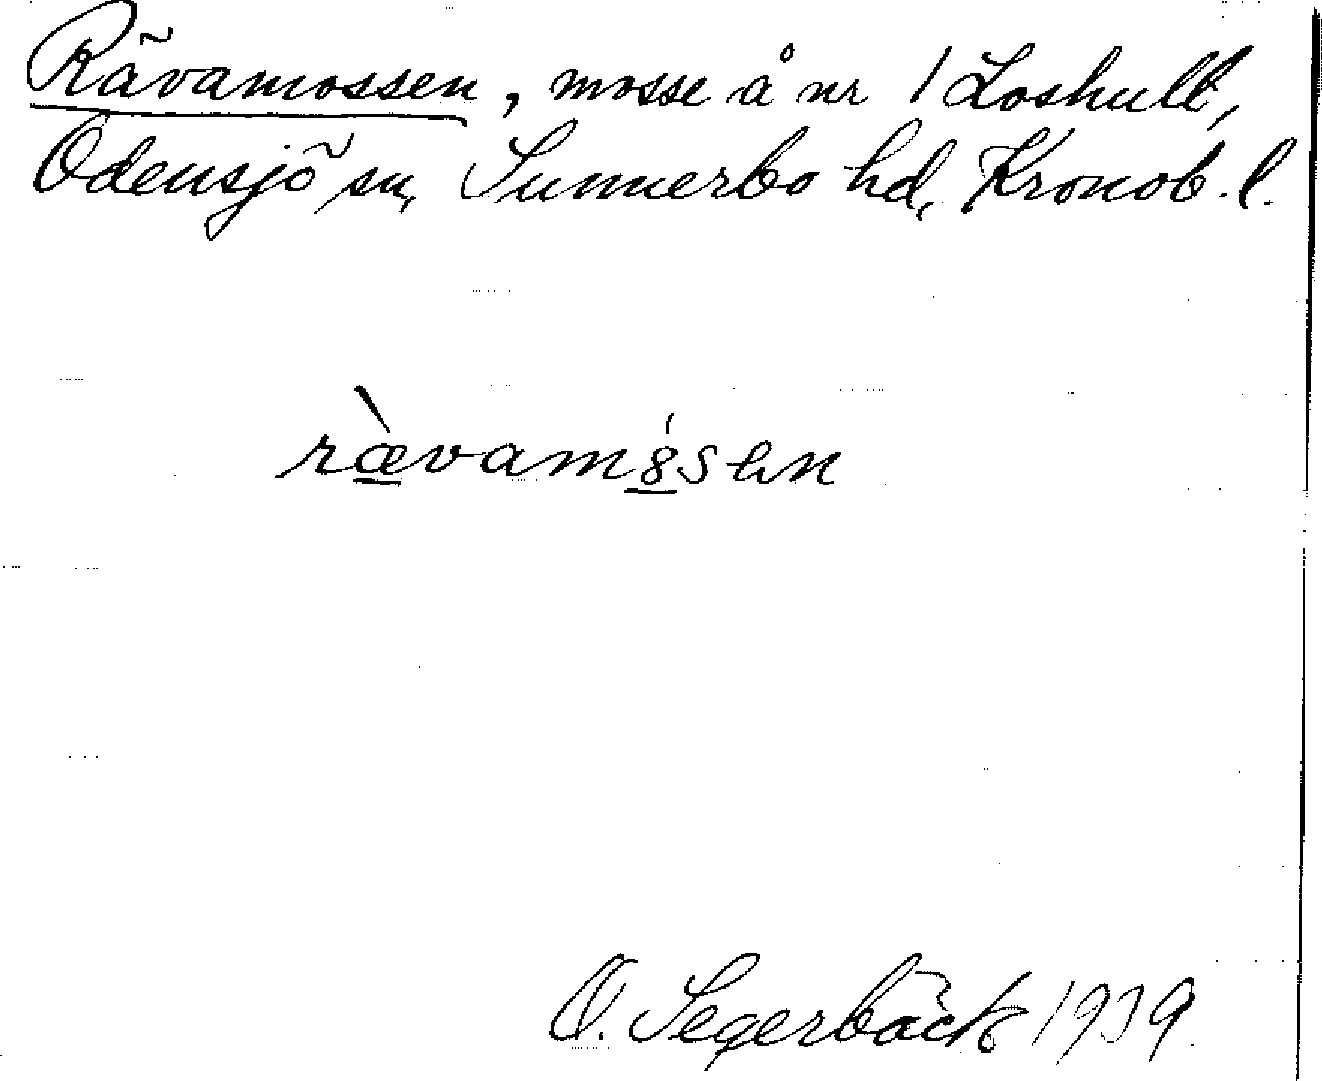 Rävamossen, mosse å nr 1 Loshult,
Odensjö sn, Sunnerbo hd, Kronob. l.
rævam8sen
O. Segerbäck 1939